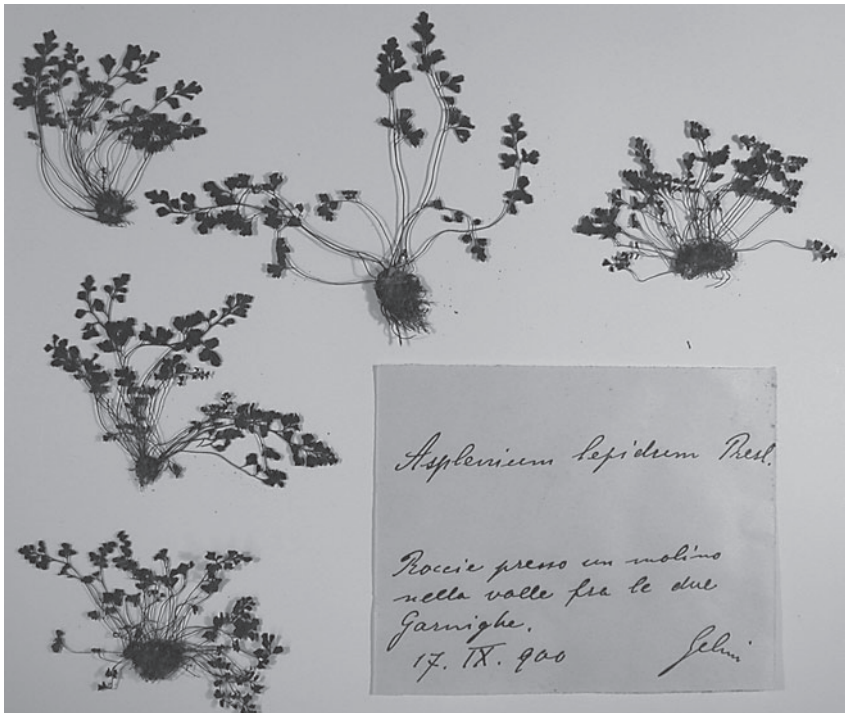 Asplenium lepidum Presl.
Roccie presso un molino
nella valle fra le due
Garnighe.
17. IX. 900 Gelmi